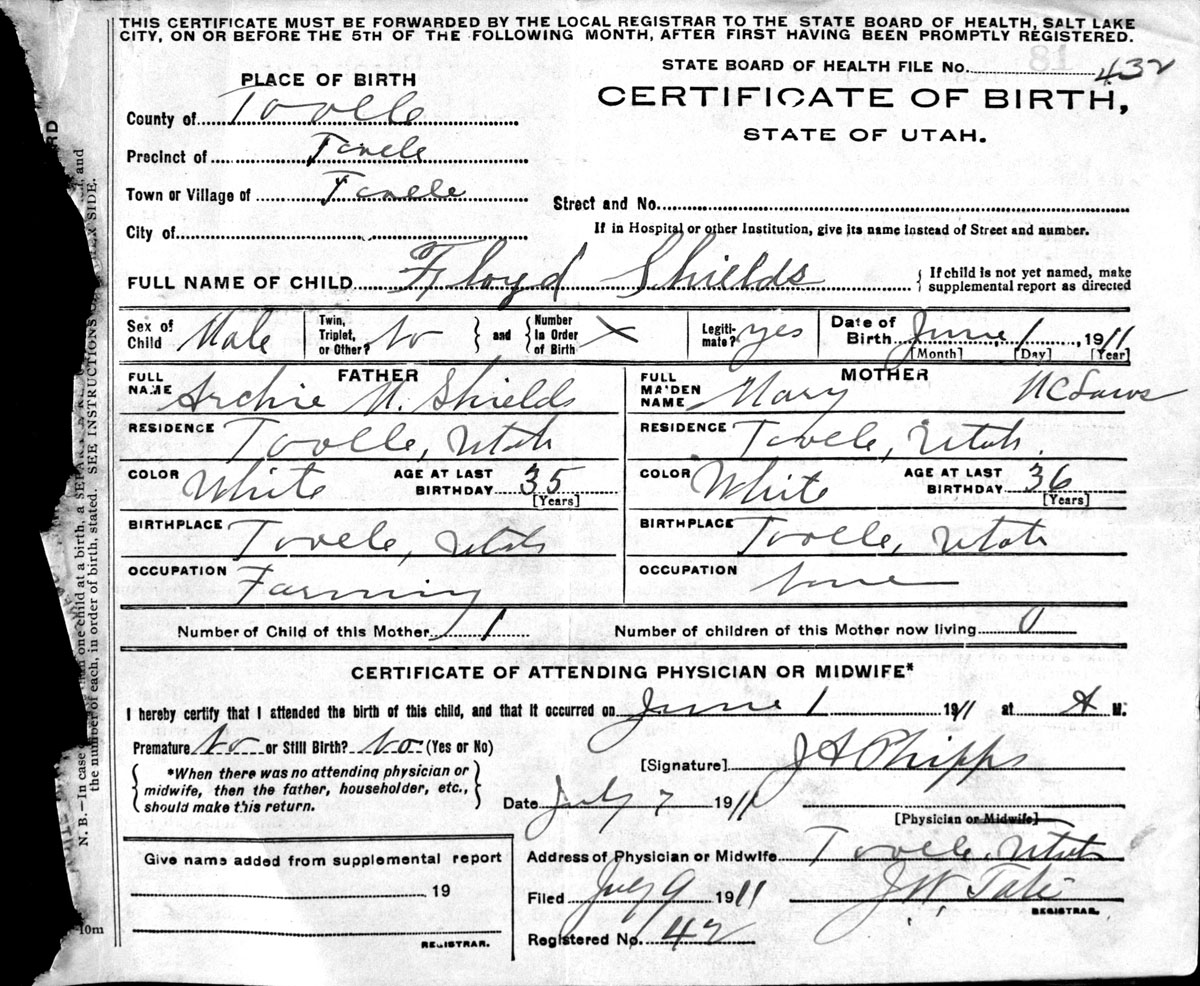 THIS CERTIFICATE MUST BE FORWARDED BY THE LOCAL REGISTRAR TO THE STATE BOARD OF HEALTH, SALT LAKE
CITY, ON OR BEFORE THE 5TH OF THE FOLLOWING MONTH, AFTER FIRST HAVING BEEN PROMPTLY REGISTERED.
81
STATE BOARD OF HEALTH FILE No. 432
PLACE OF BIRTH
CERTIFICATE OF BIRTH,
STATE OF UTAH.
County of Tooele
Precinct of Tooele
Town or Village of Tooele
Street and No.
City of
If in Hospital or other Institution, give its name instead of Street and number.
FULL NAME OF CHILD Floyd Shields
If child is not yet named, make
supplemental report as directed
Sex of Child Male Twin, Triplet, or Other? No and Number In Order of Birth X Legiti-mate? yes Date of Birth June 1, 1911
[Month] [Day] [Year]
FATHER
FULL NAME Archie M. Shields
MOTHER
FULL MAIDEN NAME Mary McLaws
RESIDENCE Tooele, Utah
RESIDENCE Tooele, Utah.
COLOR White AGE AT LAST BIRTHDAY 35 [Years]
COLOR White AGE AT LAST BIRTHDAY 36 [Years]
BIRTHPLACE Tooele, Utah
BIRTHPLACE Tooele, Utah
OCCUPATION Farming
OCCUPATION None
Number of Child of this Mother 1 Number of children of this Mother now living 0
CERTIFICATE OF ATTENDING PHYSICIAN OR MIDWIFE*
I hereby certify that I attended the birth of this child, and that it occurred on June 1 1911 at A M.
Premature No or Still Birth? No (Yes or No)
*When there was no attending physician or
midwife, then the father, householder, etc.,
should make this return.
[Signature] J A Phipps
Date July 7 1911
[Physician or Midwife]
Give name added from supplemental report
19
REGISTRAR.
Address of Physician or Midwife Tooele, Utah
Filed July 9 1911 J W Tate
REGISTRAR.
Registered No. 42
N. B.—In case
than one child at a birth, a
the number of each, in order of birth, stated. SEE INSTRUCTIONS
SIDE.
10m